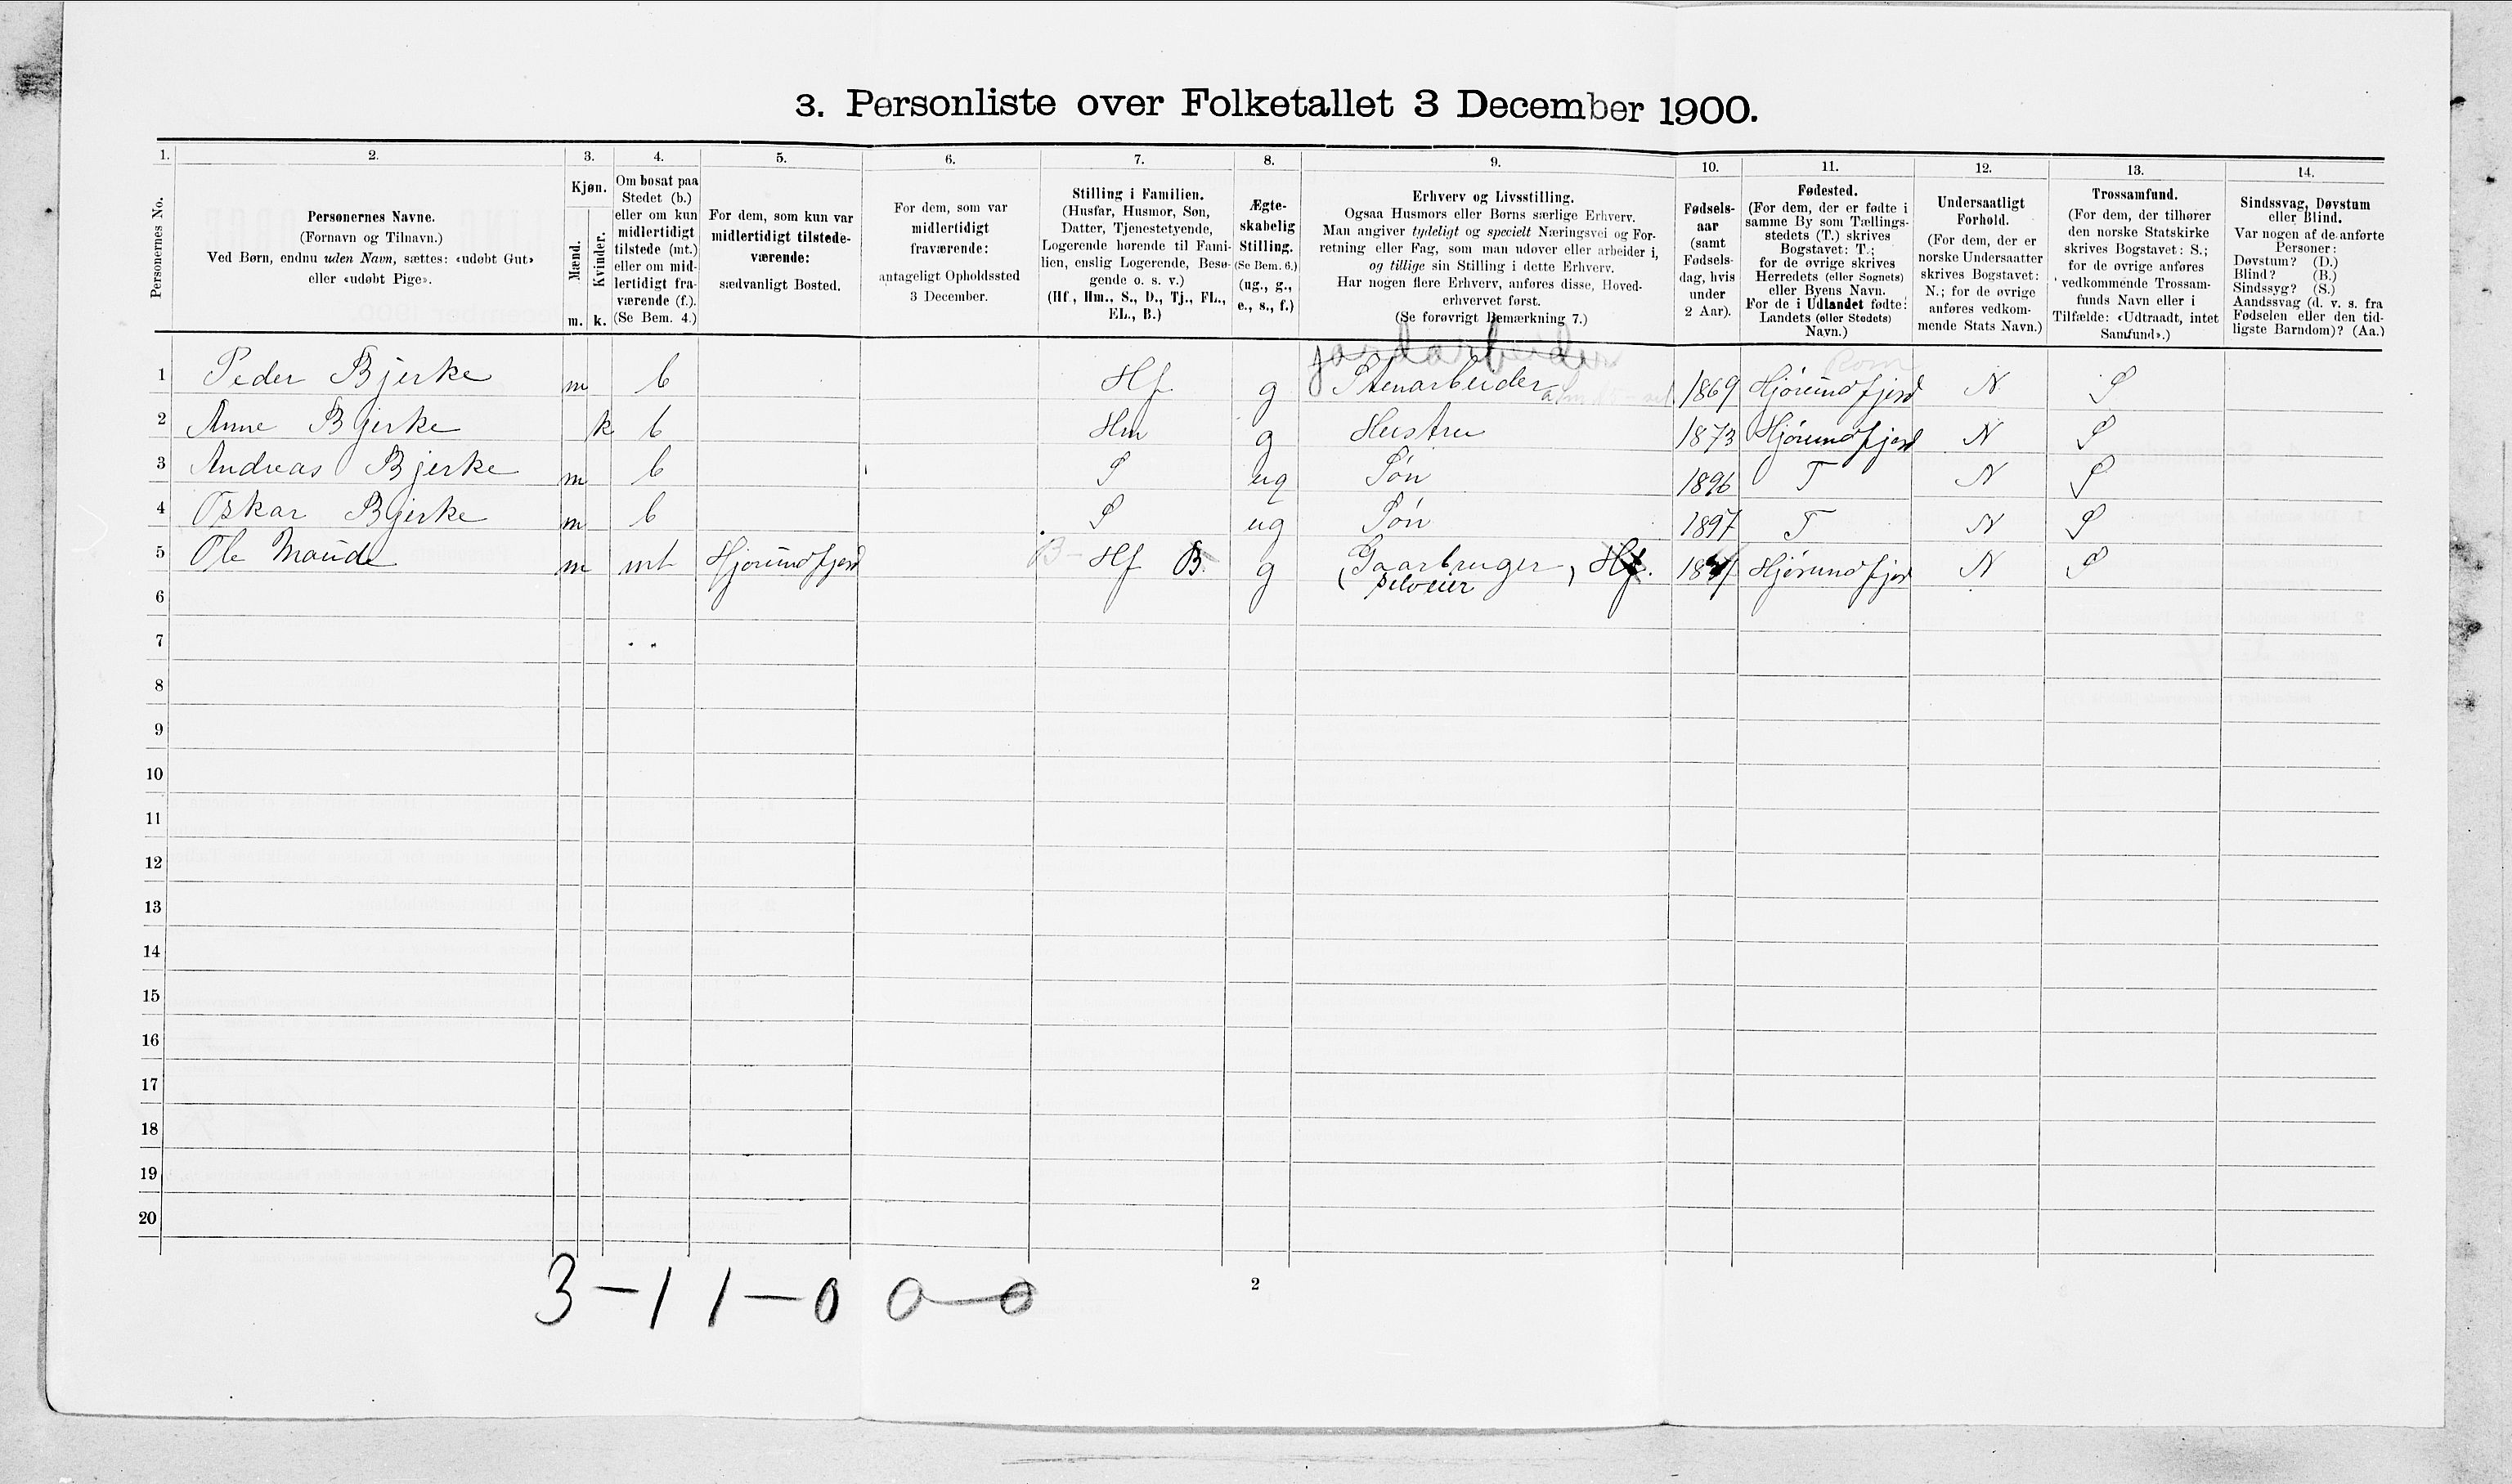 3. Personliste over Folketallet 3 December 1900.
1. 2. 3. 4. 5. 6. 7. 8. 9. 10. 11. 12. 13. 14.
Personernes No.
Personernes Navne.
(Fornavn og Tilnavn.)
Ved Børn, endnu uden Navn, sættes: «udøbt Gut»
eller «udøbt Pige».
Kjøn.
Mænd.
Kvinder.
m. k.
Om bosat paa
Stedet (b.)
eller om kun
midlertidigt
tilstede (mt.)
eller om mid-
lertidigt fra-
værende (f.).
(Se Bem. 4.)
For dem, som kun var
midlertidigt tilstede-
værende:
sædvanligt Bosted.
For dem, som var
midlertidigt
fraværende:
antageligt Opholdssted
3 December.
Stilling i Familien.
(Husfar, Husmor, Søn,
Datter, Tjenestetyende,
Logerende hørende til Fami-
lien, enslig Logerende, Besø-
gende o. s. v.)
(Hf., Hm., S., D., Tj., FL.,
EL., B.)
Ægte-
skabelig
Stilling.
(Se Bem. 6.)
(ug., g.,
e., s., f.)
Erhverv og Livsstilling.
Ogsaa Husmors eller Børns særlige Erhverv.
Man angiver tydeligt og specielt Næringsvei og For-
retning eller Fag, som man udøver eller arbeider i,
og tillige sin Stilling i dette Erhverv.
Har nogen flere Erhverv, anføres disse, Hoved-
erhvervet først.
(Se forøvrigt Bemærkning 7.)
Fødsels-
aar
(samt
Fødsels-
dag, hvis
under
2 Aar).
Fødested.
(For dem, der er fødte i
samme By som Tællings-
stedets (T.) skrives
Bogstavet: T.;
for de øvrige skrives
Herredets (eller Sognets)
eller Byens Navn.
For de i Udlandet fødte:
Landets (eller Stedets)
Navn.)
Undersaatligt
Forhold.
(For dem, der er
norske Undersaatter
skrives Bogstavet:
N.; for de øvrige
anføres vedkom-
mende Stats Navn.)
Trossamfund.
(For dem, der tilhører
den norske Statskirke
skrives Bogstavet: S.;
for de øvrige anføres
vedkommende Trossam-
funds Navn eller i
Tilfælde: «Udtraadt, intet
Samfund».)
Sindssvag, Døvstum
eller Blind.
Var nogen af de anførte
Personer:
Døvstum? (D.)
Blind? (B.)
Sindssyg? (S.)
Aandssvag (d. v. s. fra
Fødselen eller den tid-
ligste Barndom)? (Aa.)
jordarbeider
Rom
1 Peder Bjerke m b Hf g Stenarbeider 1869 Hjørundfjord N S
2 Anne Bjerke k b Hm g Hustru 1873 Hjørundfjord N S
3 Andreas Bjerke m b S ug Søn 1896 T N S
4 Oskar Bjerke m b S ug Søn 1897 T N S
5 Ole Maude m mt Hjørundfjord B Hf B. g Gaarbruger, Hf. Hjørundfjord N S
(selveier
6
7
8
9
10
11
12
13
14
15
16
17
18
19
20
3-1 1-0 0-0
2